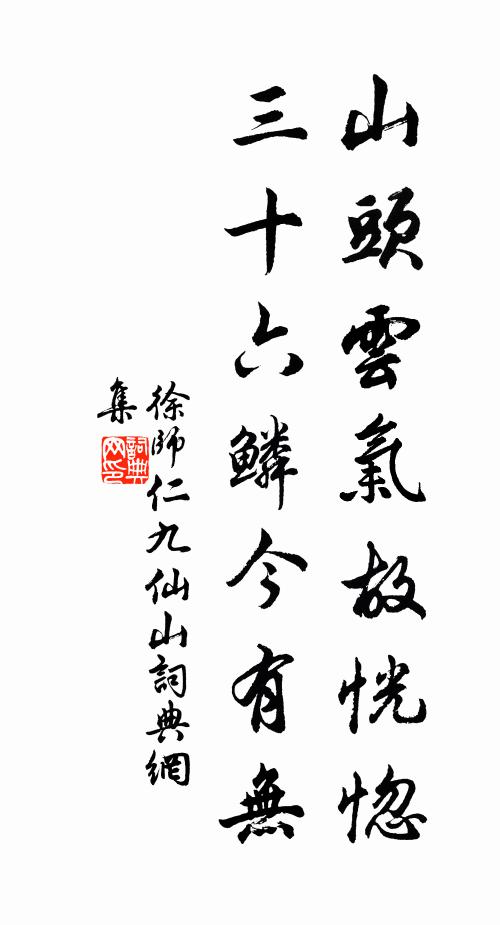 山頭雲氣故恍惚
三十六鱗今有無
徐師仁九仙山詞典網
集
詞典網印